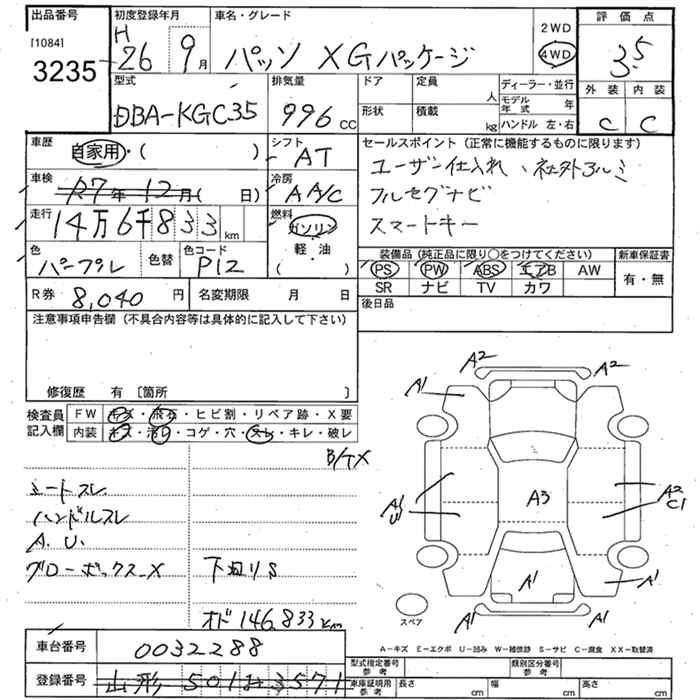 出品番号
[1084]
3235
初度登録年月
H 26 9月
車名・グレード
パッソ XGパッケージ
2WD
4WD
評価点
3.5
外装 内装
C C
型式
DBA-KGC35
排気量
996 CC
ドア 定員 人
形状 積載 kg
ディーラー・並行
モデル年式 年
ハンドル 左・右
車歴
自家用・( )
シフト
AT
車検
R7年12月( 日)
冷房
AA/C
走行
14万6千833km
燃料
ガソリン
軽・油
( )
色
パープル
色替
色コード
P12
セールスポイント (正常に機能するものに限ります)
ユーザー仕入れ、社外アルミ
フルセグナビ
スマートキー
装備品 (純正品に限り○をつけてください)
PS PW ABS エアB AW
SR ナビ TV カワ
新車保証書
有・無
R券 8,040 円
名変期限 月 日
後日品
注意事項申告欄 (不具合内容等は具体的に記入して下さい)
修復歴 有 [箇所 ]
検査員記入欄
FW キズ・飛石・ヒビ割・リペア跡・X要
内装 キズ・汚レ・コゲ・穴・スレ・キレ・破レ
B/TX
シートスレ
ハンドルスレ
A.U.
グローボックスX
下廻りS
オド 146,833km
A2
A2
A1
A1
A1
U1
A3
A2
C1
A1
A1
A1
A1
スペア
A-キズ E-エクボ U-凹み W-補修跡 S-サビ C-腐食 XX-取替済
車台番号
0032288
登録番号
山形 501 は 3571
型式指定番号 参考
類別区分番号 参考
車庫証明用 参考
長さ cm 幅 cm 高さ cm